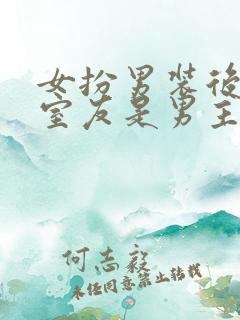 女扮男装後
室友是男主
何志毅
未经同意禁止转载